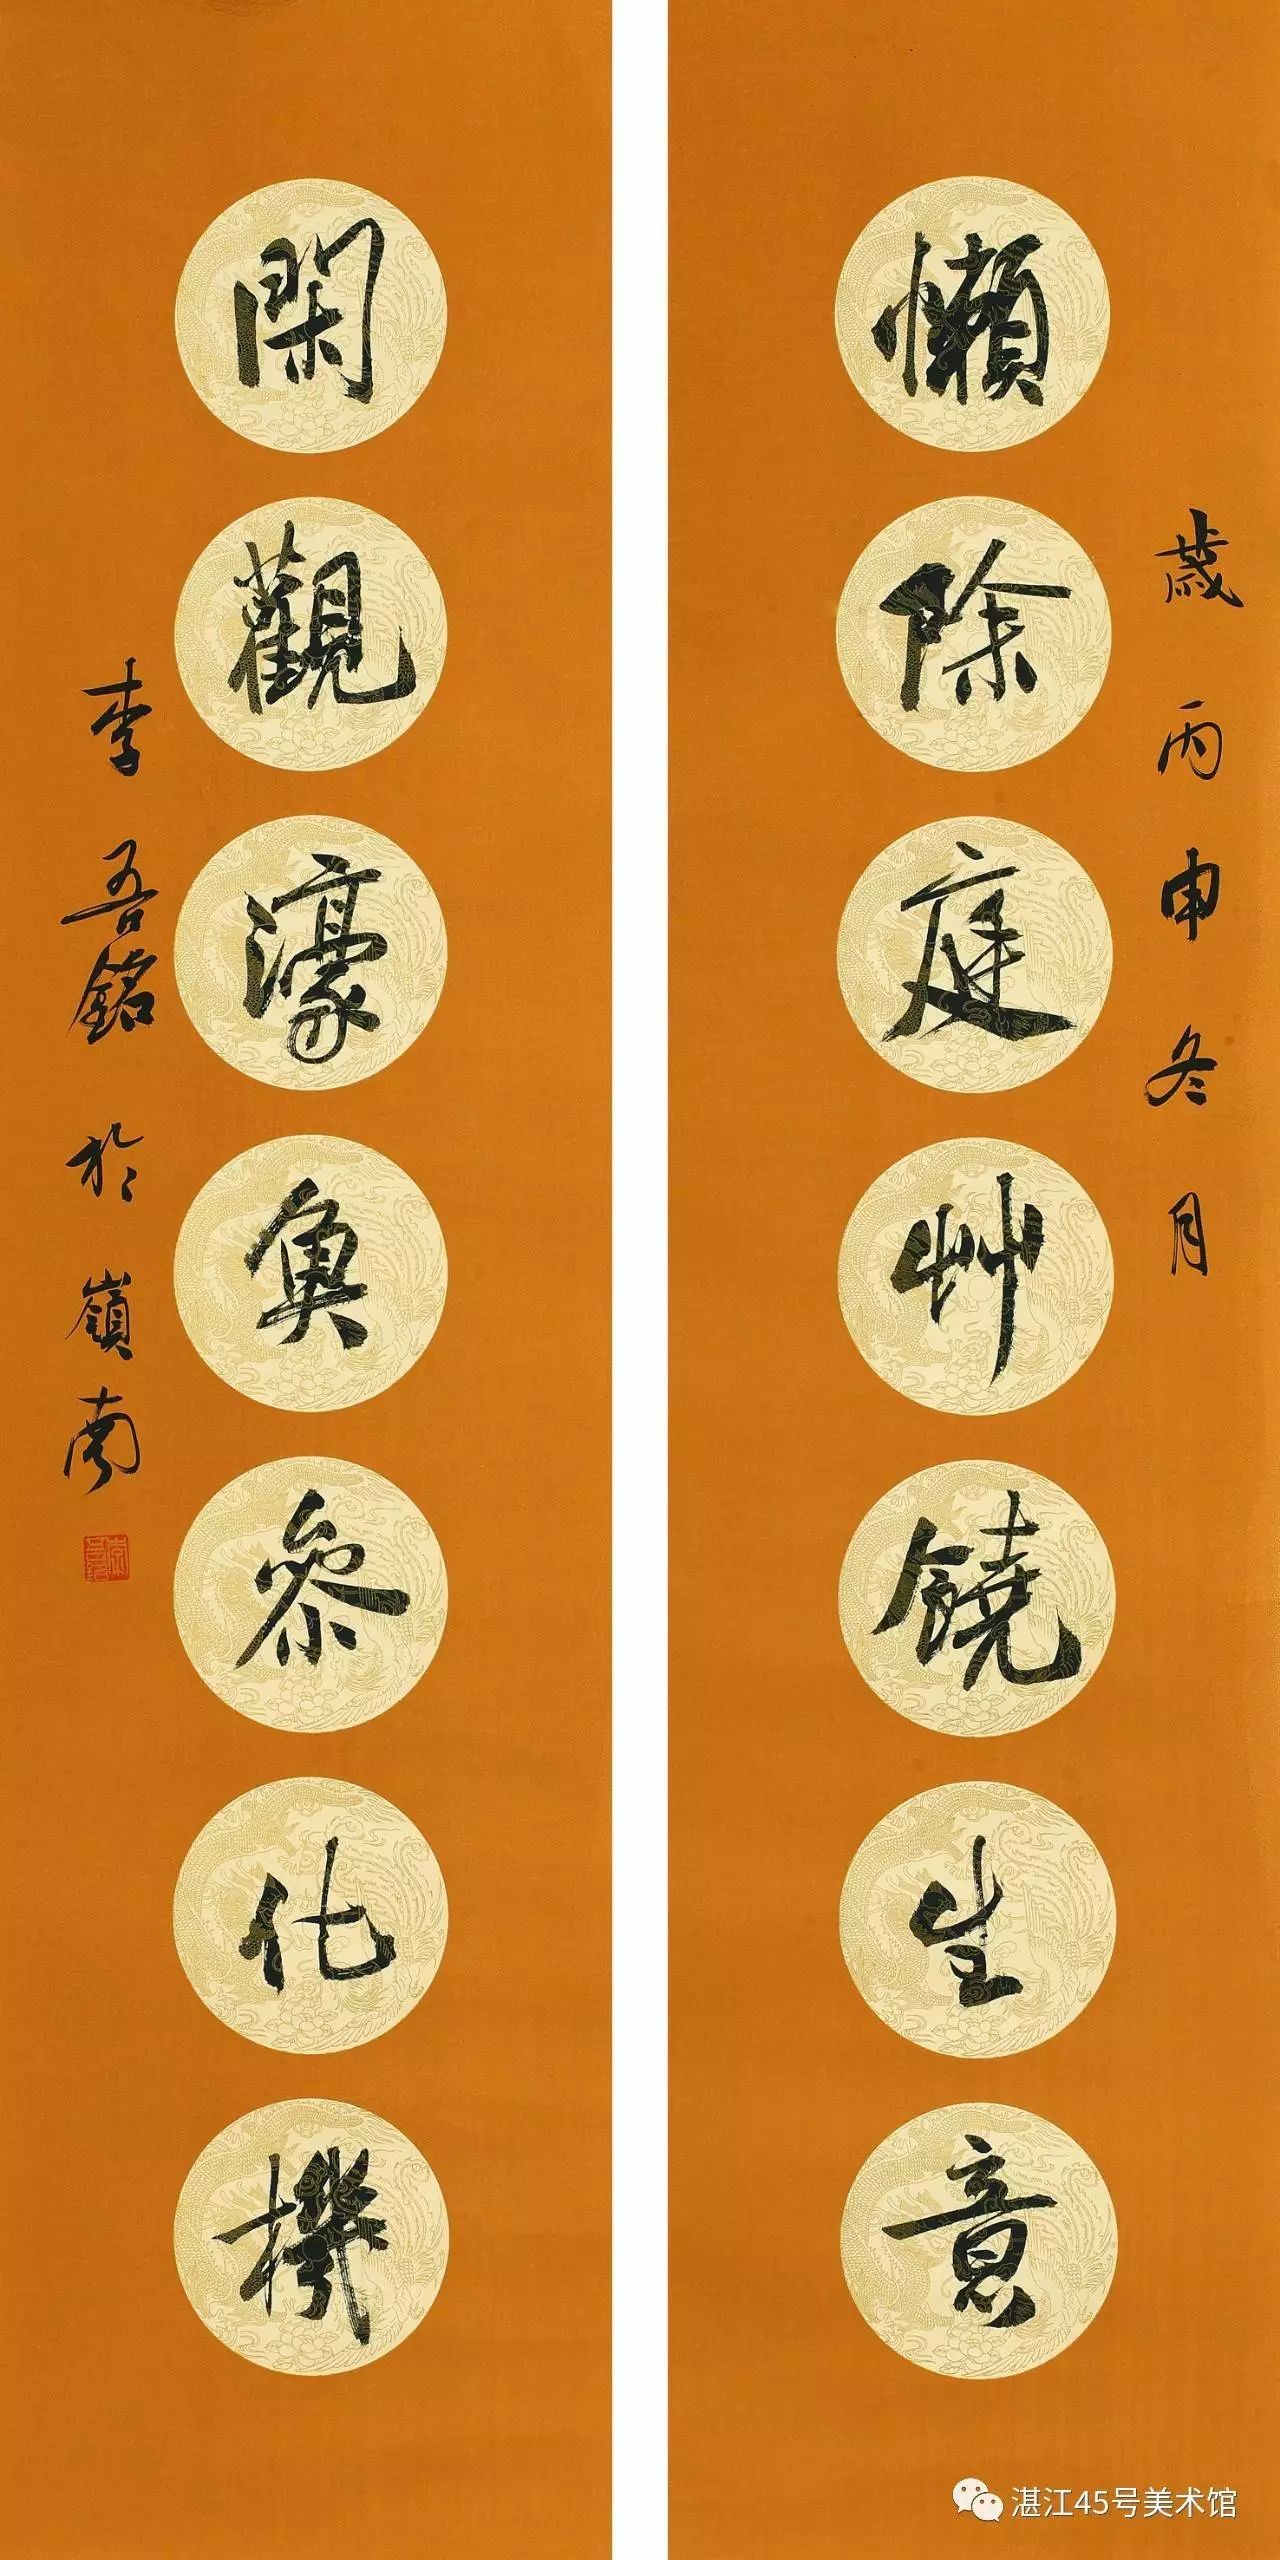 歲丙申冬月
懶除庭艸饒生意
閑觀濠魚參化機
李吾銘於嶺南
湛江45号美术馆